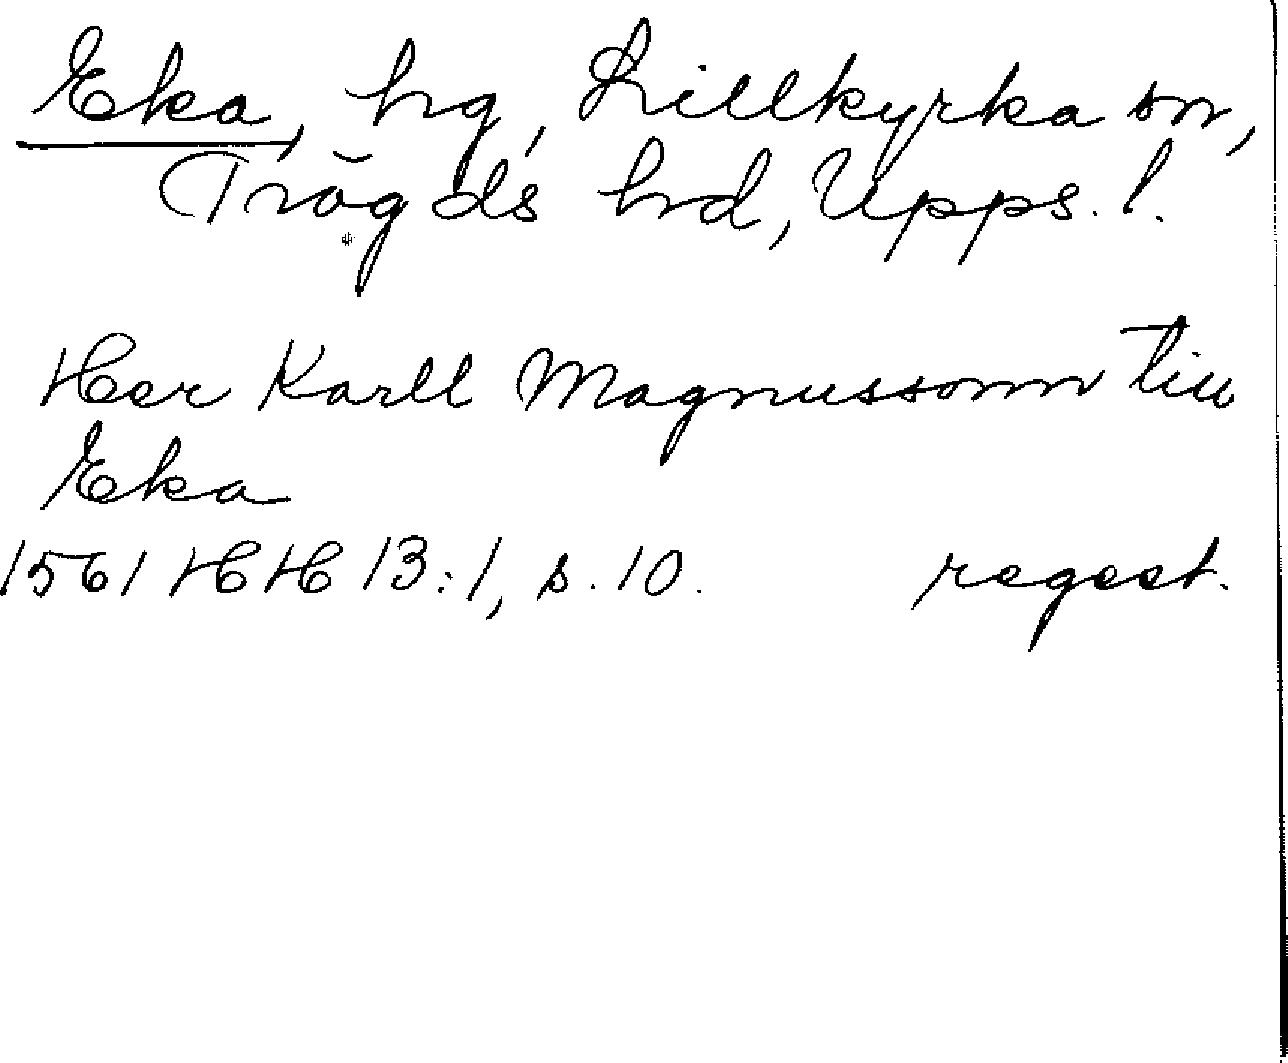 Eka, hg, Lillkyrka sn,
Trögds hd, Upps. l.
Her Karll Magnussonn till
Eka
1561 HH 13:1, s. 10. regest.